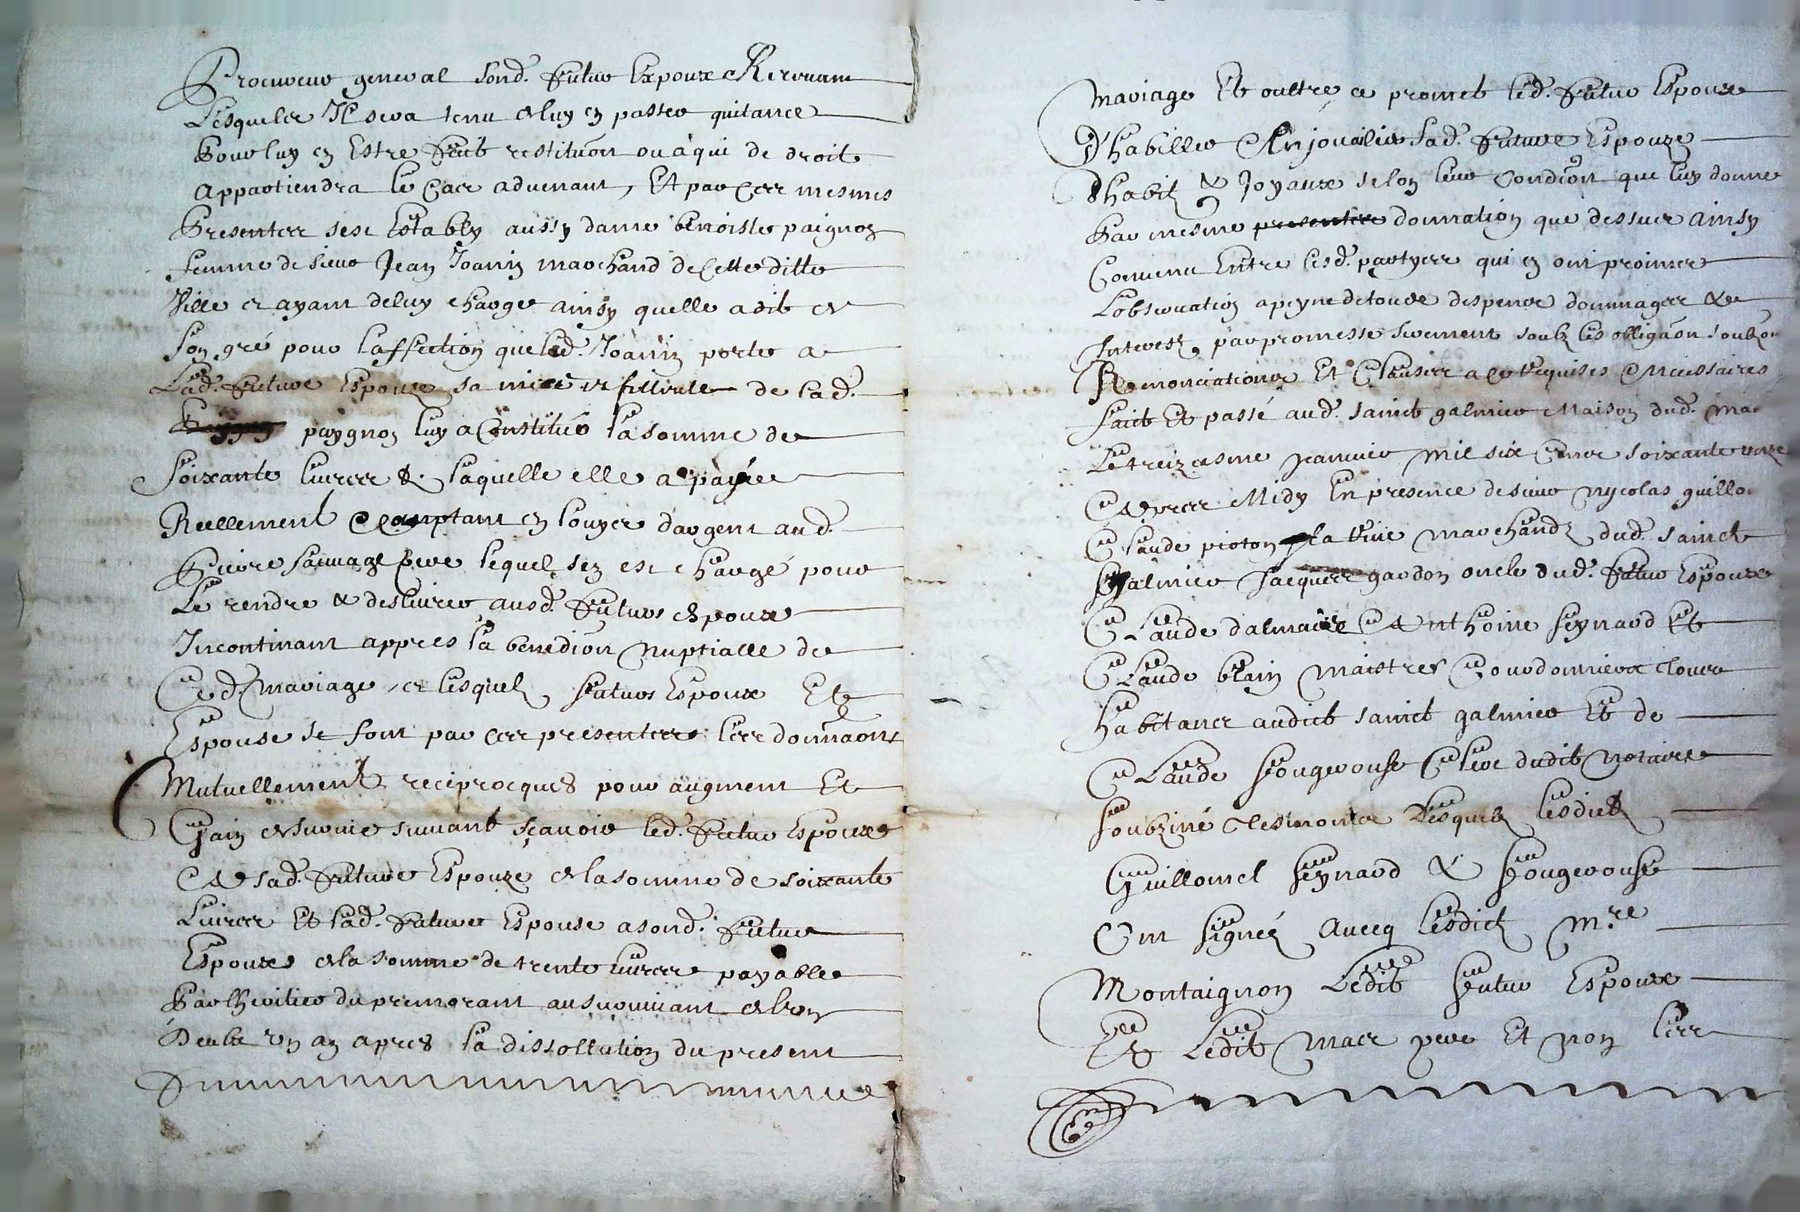 Procureur general sond. futur Expoux Recevant
Lesqueler Il sera tenu & luy en passer quitance
Pour luy en Estre faict restituon ou à qui de droit
appartiendra le Cacr advenant, Et par Cecr mesmes
Presenter sest Estably aussy dame benoiste paignon
femme de sieur Jean Joanin marchand de Cette ditte
Ville et ayant de luy charge ainsy quelle a dit &
son gré pour laffection que led. Joanin porte a
Lad. future Espouze sa niece et filleule de lad.
paygnon luy a Constitué la somme de
soixante livrer & laquelle elle a payée
Reellement comptant en louyer dargent aud.
Pierre sauvage pere lequel sen est chargé pour
Le rendre & deslivrer ausd. futurs espoux
Incontinant appres la benedion nuptialle de
Ced. mariage, et lesquelz futurs Espoux Et
Espouse se font par cecr presenter lecr donnaons
Mutuellement reciprocques pour augment Et
Gain & survie suivant sçavoir led. futur Espoux
A sad. future Espouze & la somme de soixante
Livrer Et lad. future Espouse a sond. futur
Espoux & la somme de trente livrer payable
Par lheritier du premorant au survivant &
un an apres la dissollution du present
Mariage Et oultre ce promet led. futur Espoux
D'habiller Enjoualir sad. future Espouze
Dhabitz & Joyaux selon leur Condion que luy donne
Par mesme donnation que dessus ainsy
Convenu Entre lesd. partyer qui en ont promer
Lobservation a peyne de tous despens dommager &
Interestz, par promesse serement soubz les obligaon
Renonciations Et Clauser a ce requises & necessaires
faict Et passé aud. sainct galmier Maison dud. mac
Le treiziesme janvier mil six Cens soixante onze
Aprecr Midy En presence de sieur nycolas guillo
Claude pioton la Vive marchandz dud. sainct
Galmier Jacquer gardon oncle dud. futur Espoux
Claude dalmaice Anthoine feynard Et
Claude blain maistres Courdonnierx touce
habitancr audict sainct galmier Et de
Claude fougerouse Clerc dudit notaire
soubziné tesmoincr Desquelz lesdictz
Guillomel feynard & fougerouse
Ont signéz avecq lesdictz Mre
Montaignon Ledit futur Espoux
Et Ledit Macr pere Et non lecr